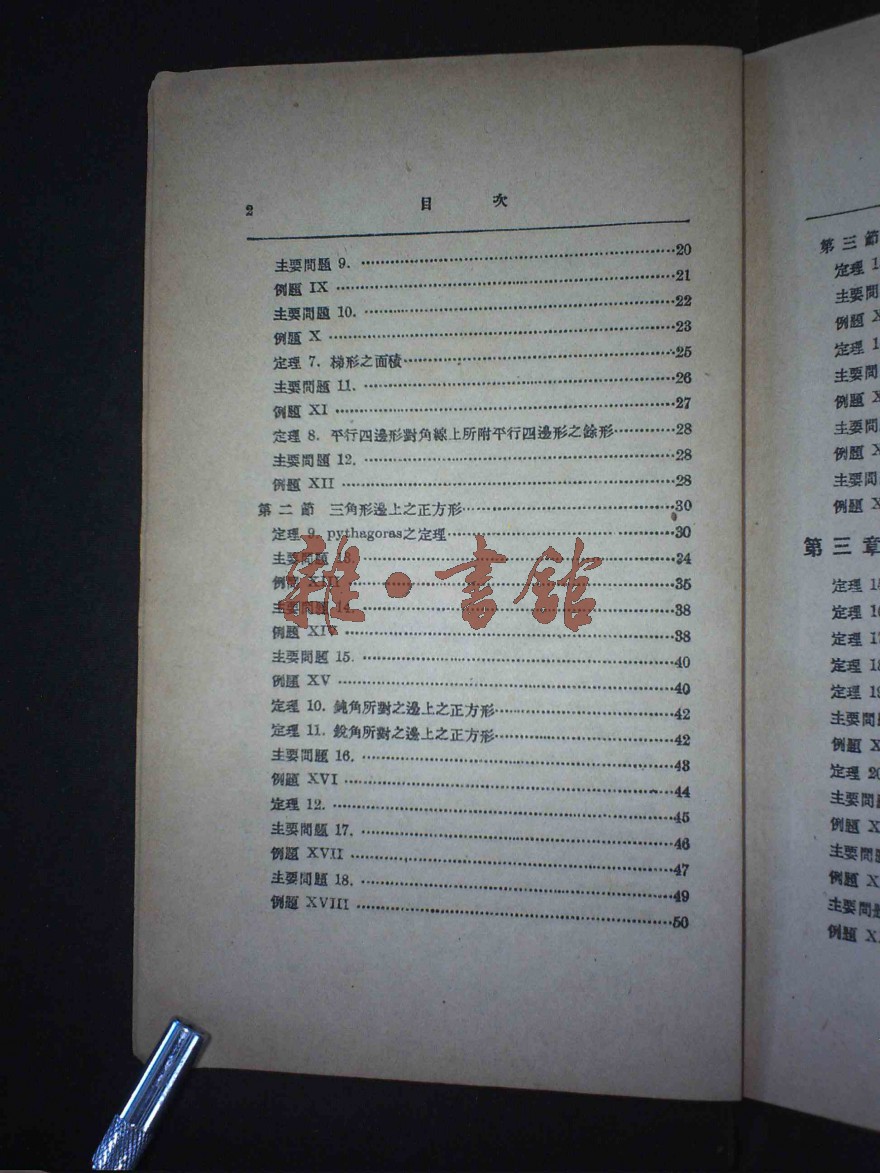 2 目 次
主要問題 9. ……20
例題 IX ……21
主要問題 10. ……22
例題 X ……23
定理 7. 梯形之面積……25
主要問題 11. ……26
例題 XI ……27
定理 8. 平行四邊形對角線上所附平行四邊形之餘形……28
主要問題 12. ……28
例題 XII ……28
第二節 三角形邊上之正方形……30
定理 9. pythagoras之定理……30
主要問題 13. ……34
例題 XIII ……35
主要問題 14. ……38
例題 XIV ……38
主要問題 15. ……40
例題 XV ……40
定理 10. 鈍角所對之邊上之正方形……42
定理 11. 銳角所對之邊上之正方形……42
主要問題 16. ……43
例題 XVI ……44
定理 12. ……45
主要問題 17. ……46
例題 XVII ……47
主要問題 18. ……49
例題 XVIII ……50
雜·書館
第三節
定理 1
主要問
例題 X
定理 1
主要問
例題 X
主要問
例題 X
主要問
例題 X
第三章
定理 15
定理 16
定理 17
定理 18
定理 19
主要問
例題 X
定理 20
主要問
例題 X
主要問
例題 X
主要問
例題 X